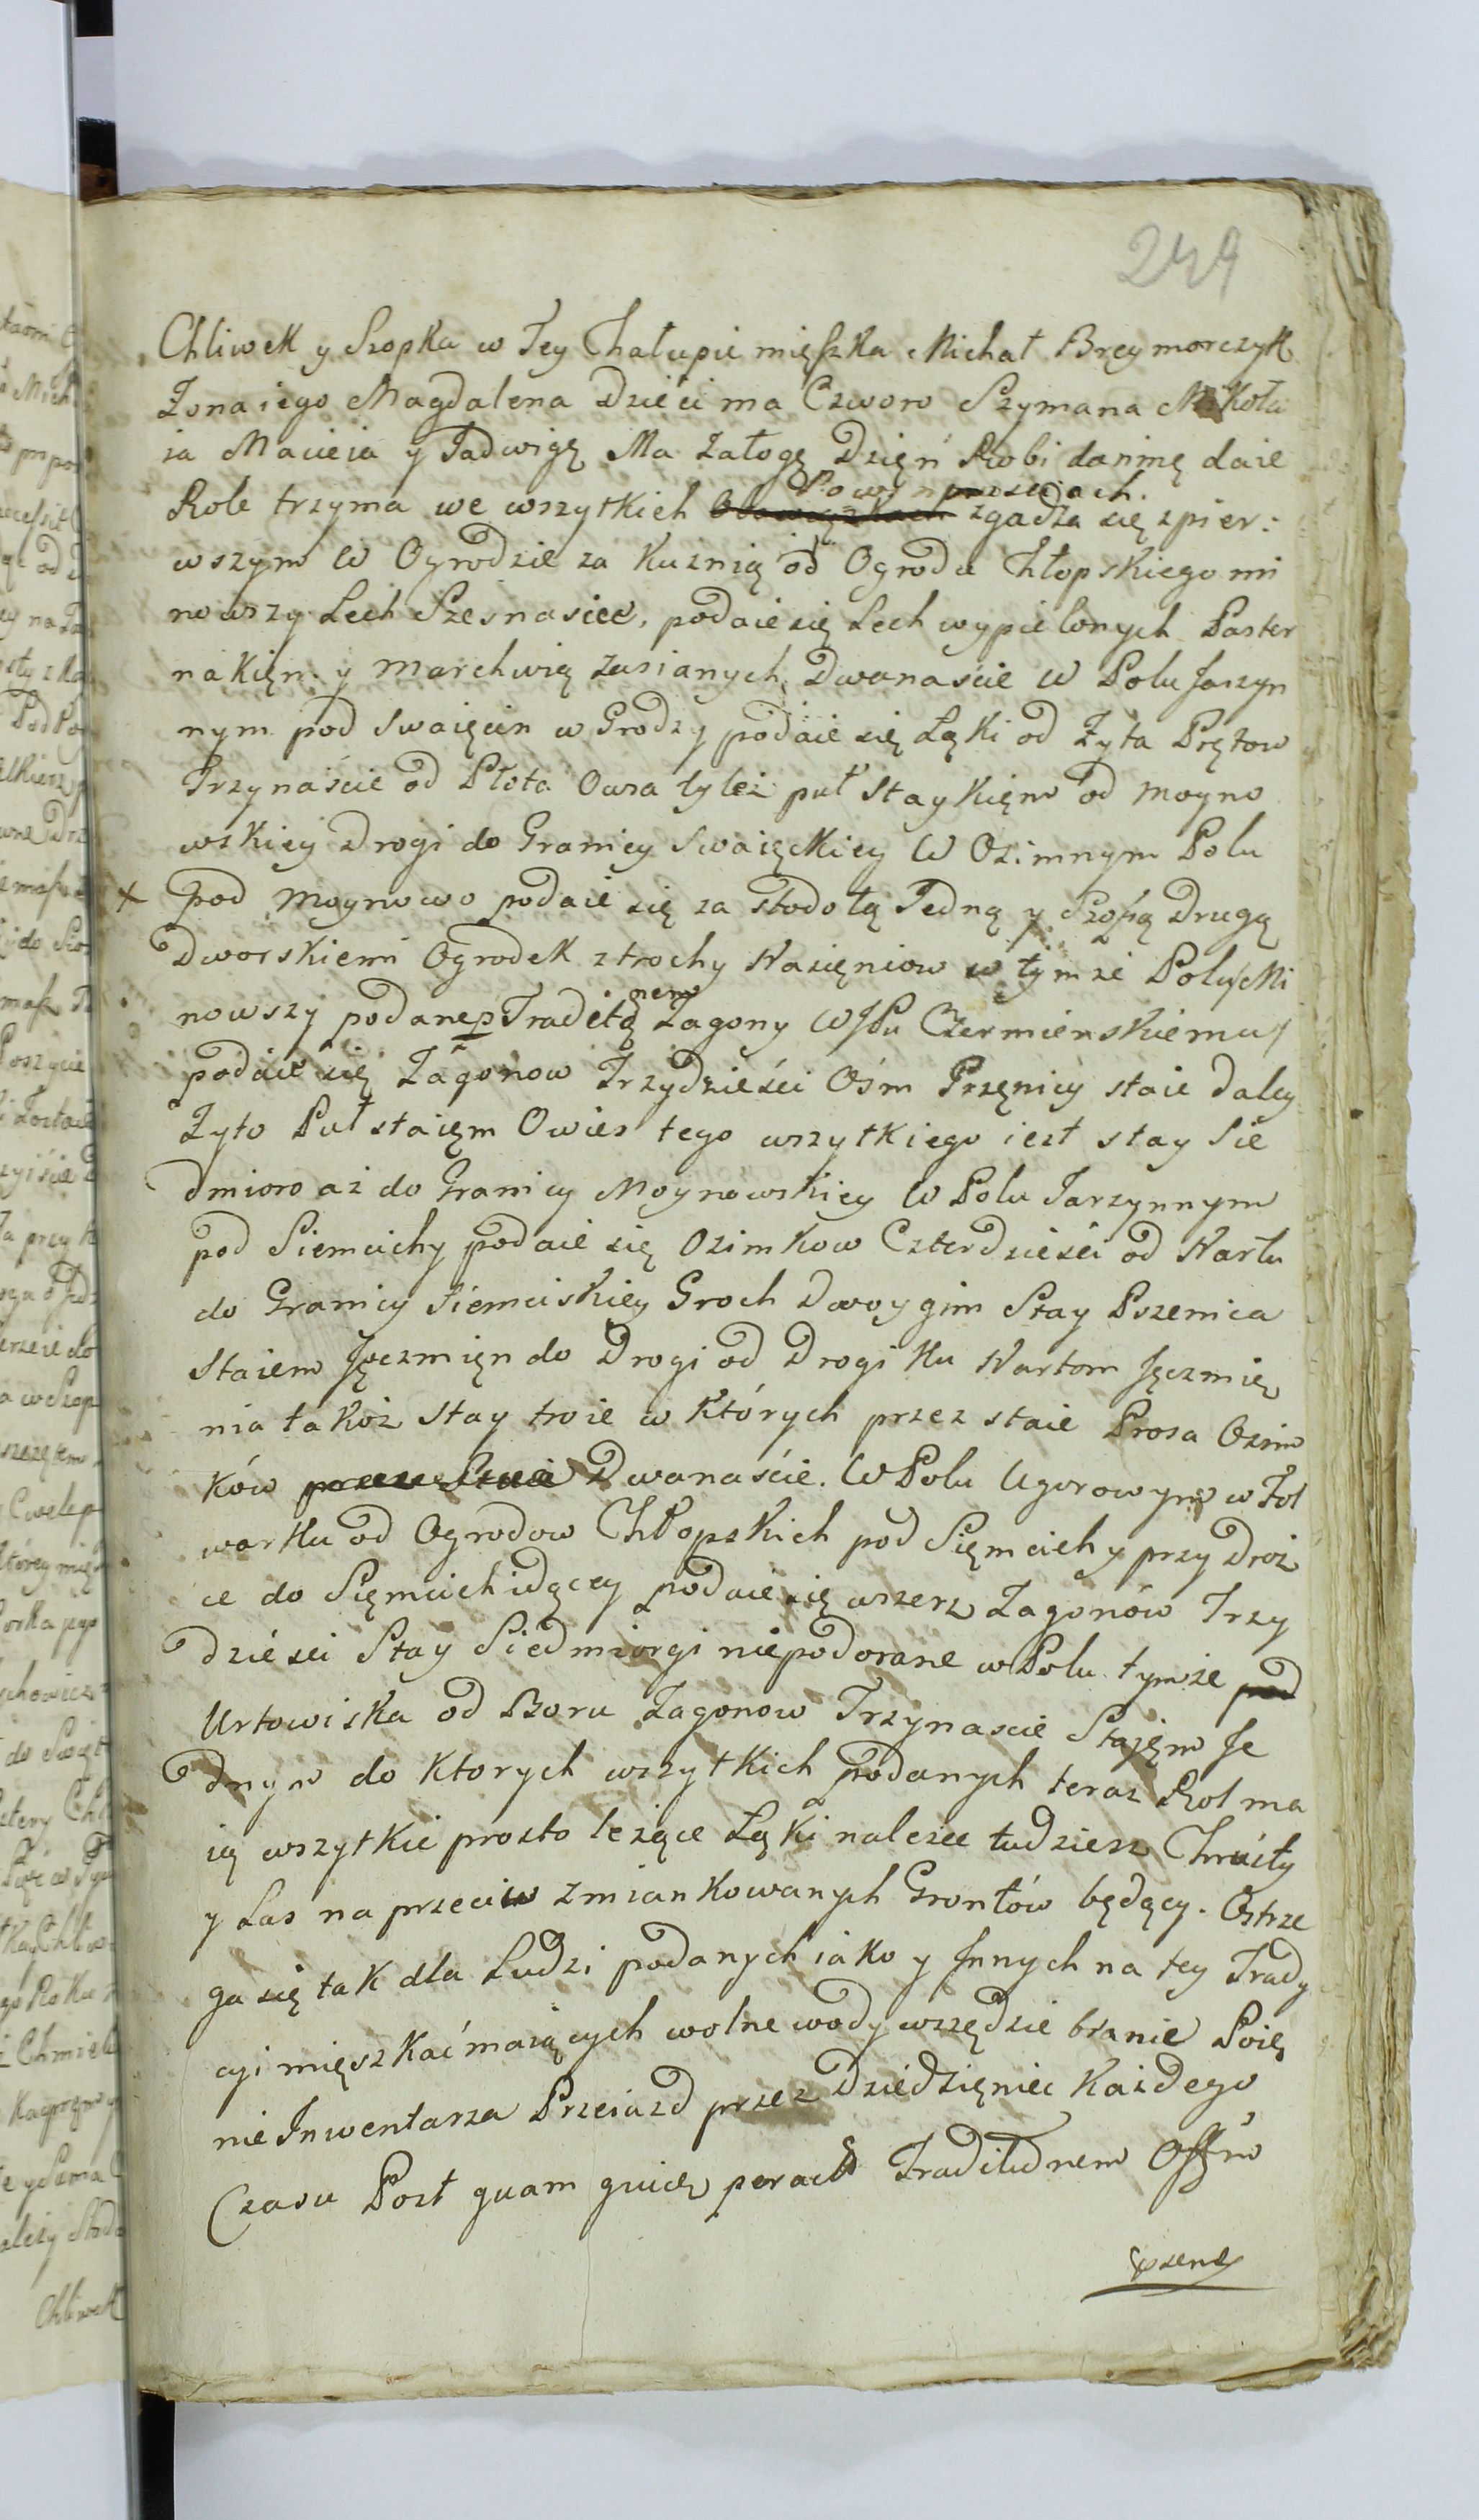 249
Chliwek y Szopka w Tey Chałupie mięszka Michał Breymorczyk
Zona iego Magdalena Dzieci ma Czworo Szymana Mikoła
ia Macieia y Jadwigę Ma Załogę Dzięń Robi daninę daie
Powynnosciach.
Role trzyma we wszytkich Obowiązkach zgadza się zpier:
wszym W Ogrodzie za Kuznią od Ogrodu Chłopskiego mi
nowszy Lech Szesnascie, podaie się Lech wypielonych Paster
nakięm y marchwią zasianych Dwanaście W Polu Jarzyn
nym pod Swaięcin w Grodzy podaie się Łąki od Zyta Prętow
Trzynaście od Płota Owsa tyleż puł Staykięm od moyno
wskiey Drogi do Granicy Swaięckiey W Ozimnym Polu
x pod Moynowo podaie się za stodołą Jedną y Szopą Drugą
Dworskiemi Ogrodek ztrochy Nasięniow w tymze Polu /Mi
nem
nowszy podane p Traditą Zagony WJPu Czermienskiemu/
podaie się Zagonow Trzydzieści Ośm Przęnicy staie daley
Zyto Puł staięm Owies tego wszytkiego iest stay Sie
dmioro aż do Granicy Moynowskiey W Polu Jarzynnym
pod Siemcichy podaie się Ozimkow Czterdzieści od Nartu
do Granicy Siemciskiey Groch Dwoygim Stay Pszenica
Staiem Jęczmięn do Drogi od Drogi Ku Nartom Jęczmię
nia takoż Stay troie w których przez staie Prosa Ozim
ków przez Staie Dwanaście. W Polu Ugorowym w Fol
warku od Ogrodow Chłopskich pod Sięmcichy przy Droż
ce do Sięmcich idącey podaie się wszerz Zagonów Trzy
dzieści Stay Siedmiorgi niepodorane w Polu tymże pod
Urtowiska od Boru Zagonow Trzynascie Staięm Je
dnym do Ktorych wszytkich podanych teraz Rol ma
ią wszytkie prosto leżące Łąki nalezec tudziesz Chrusty
y Las na przeciw zmiankowanych Grontów będący. Ostrze
ga się tak dla Ludzi podanych iako y Jnnych na tey Trady
cyi mięszkać maiących wolne wody wszędzie branie Poię
nie Jnwentarza Przeiazd przez Dziedzięniec Każdego
Czasu Post quam quidę peractą Traditionem Offm
psens